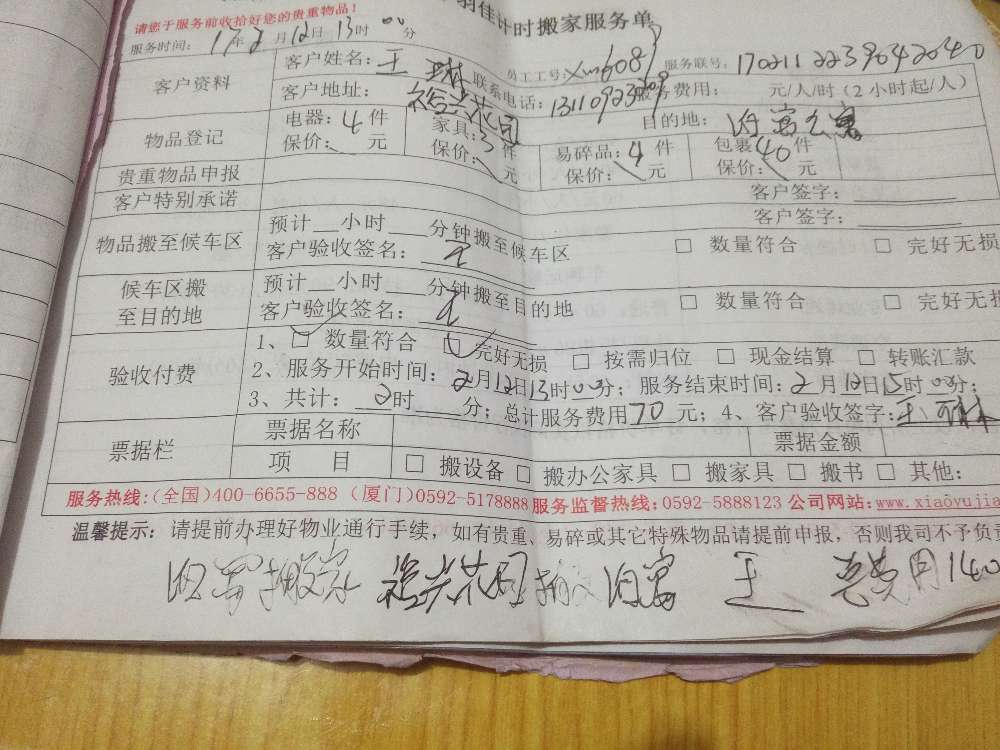 请您于服务前收拾好您的贵重物品!
羽佳计时搬家服务单
服务时间: 17年2月12日13时00分
员工工号: xm6081 服务联号: 1702112239042040
客户资料 客户姓名: 王琳 联系电话: 服务费用: 元/人/时(2小时起/人)
客户地址: 裕兴花园 目的地:
物品登记 电器: 4件 家具: 3件 易碎品: 4件 包裹: 40件
保价: 元 保价: 元 保价: 元 保价: 元
贵重物品申报 客户签字:
客户特别承诺 客户签字:
物品搬至候车区 预计__小时__分钟搬至候车区 □ 数量符合 □ 完好无损
客户验收签名: 王
候车区搬至目的地 预计__小时__分钟搬至目的地 □ 数量符合 □ 完好无损
客户验收签名: 王
验收付费 1、□ 数量符合 □ 完好无损 □ 按需归位 □ 现金结算 □ 转账汇款
2、服务开始时间: 2月12日13时00分; 服务结束时间: 2月12日15时00分;
3、共计: 2时__分; 总计服务费用70元; 4、客户验收签字: 王琳
票据栏 票据名称 票据金额
项 目 □ 搬设备 □ 搬办公家具 □ 搬家具 □ 搬书 □ 其他:
服务热线:(全国)400-6655-888 (厦门)0592-5178888 服务监督热线: 0592-5888123 公司网站: www.xiaoyujia
温馨提示: 请提前办理好物业通行手续,如有贵重、易碎或其它特殊物品请提前申报,否则我司不予负责
搬家 裕兴花园搬 王 总费用140